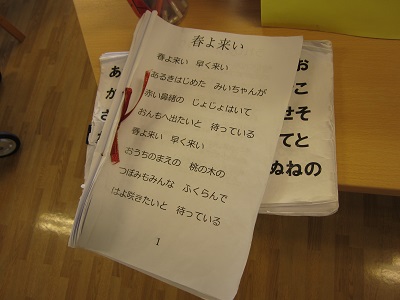 春よ来い
春よ来い 早く来い
あるきはじめた みいちゃんが
赤い鼻緒の じょじょはいて
おんもへ出たいと 待っている
春よ来い 早く来い
おうちのまえの 桃の木の
つぼみもみんな ふくらんで
はよ咲きたいと 待っている
1
あ
か
さ
お
こ
せそ
てと
ぬねの